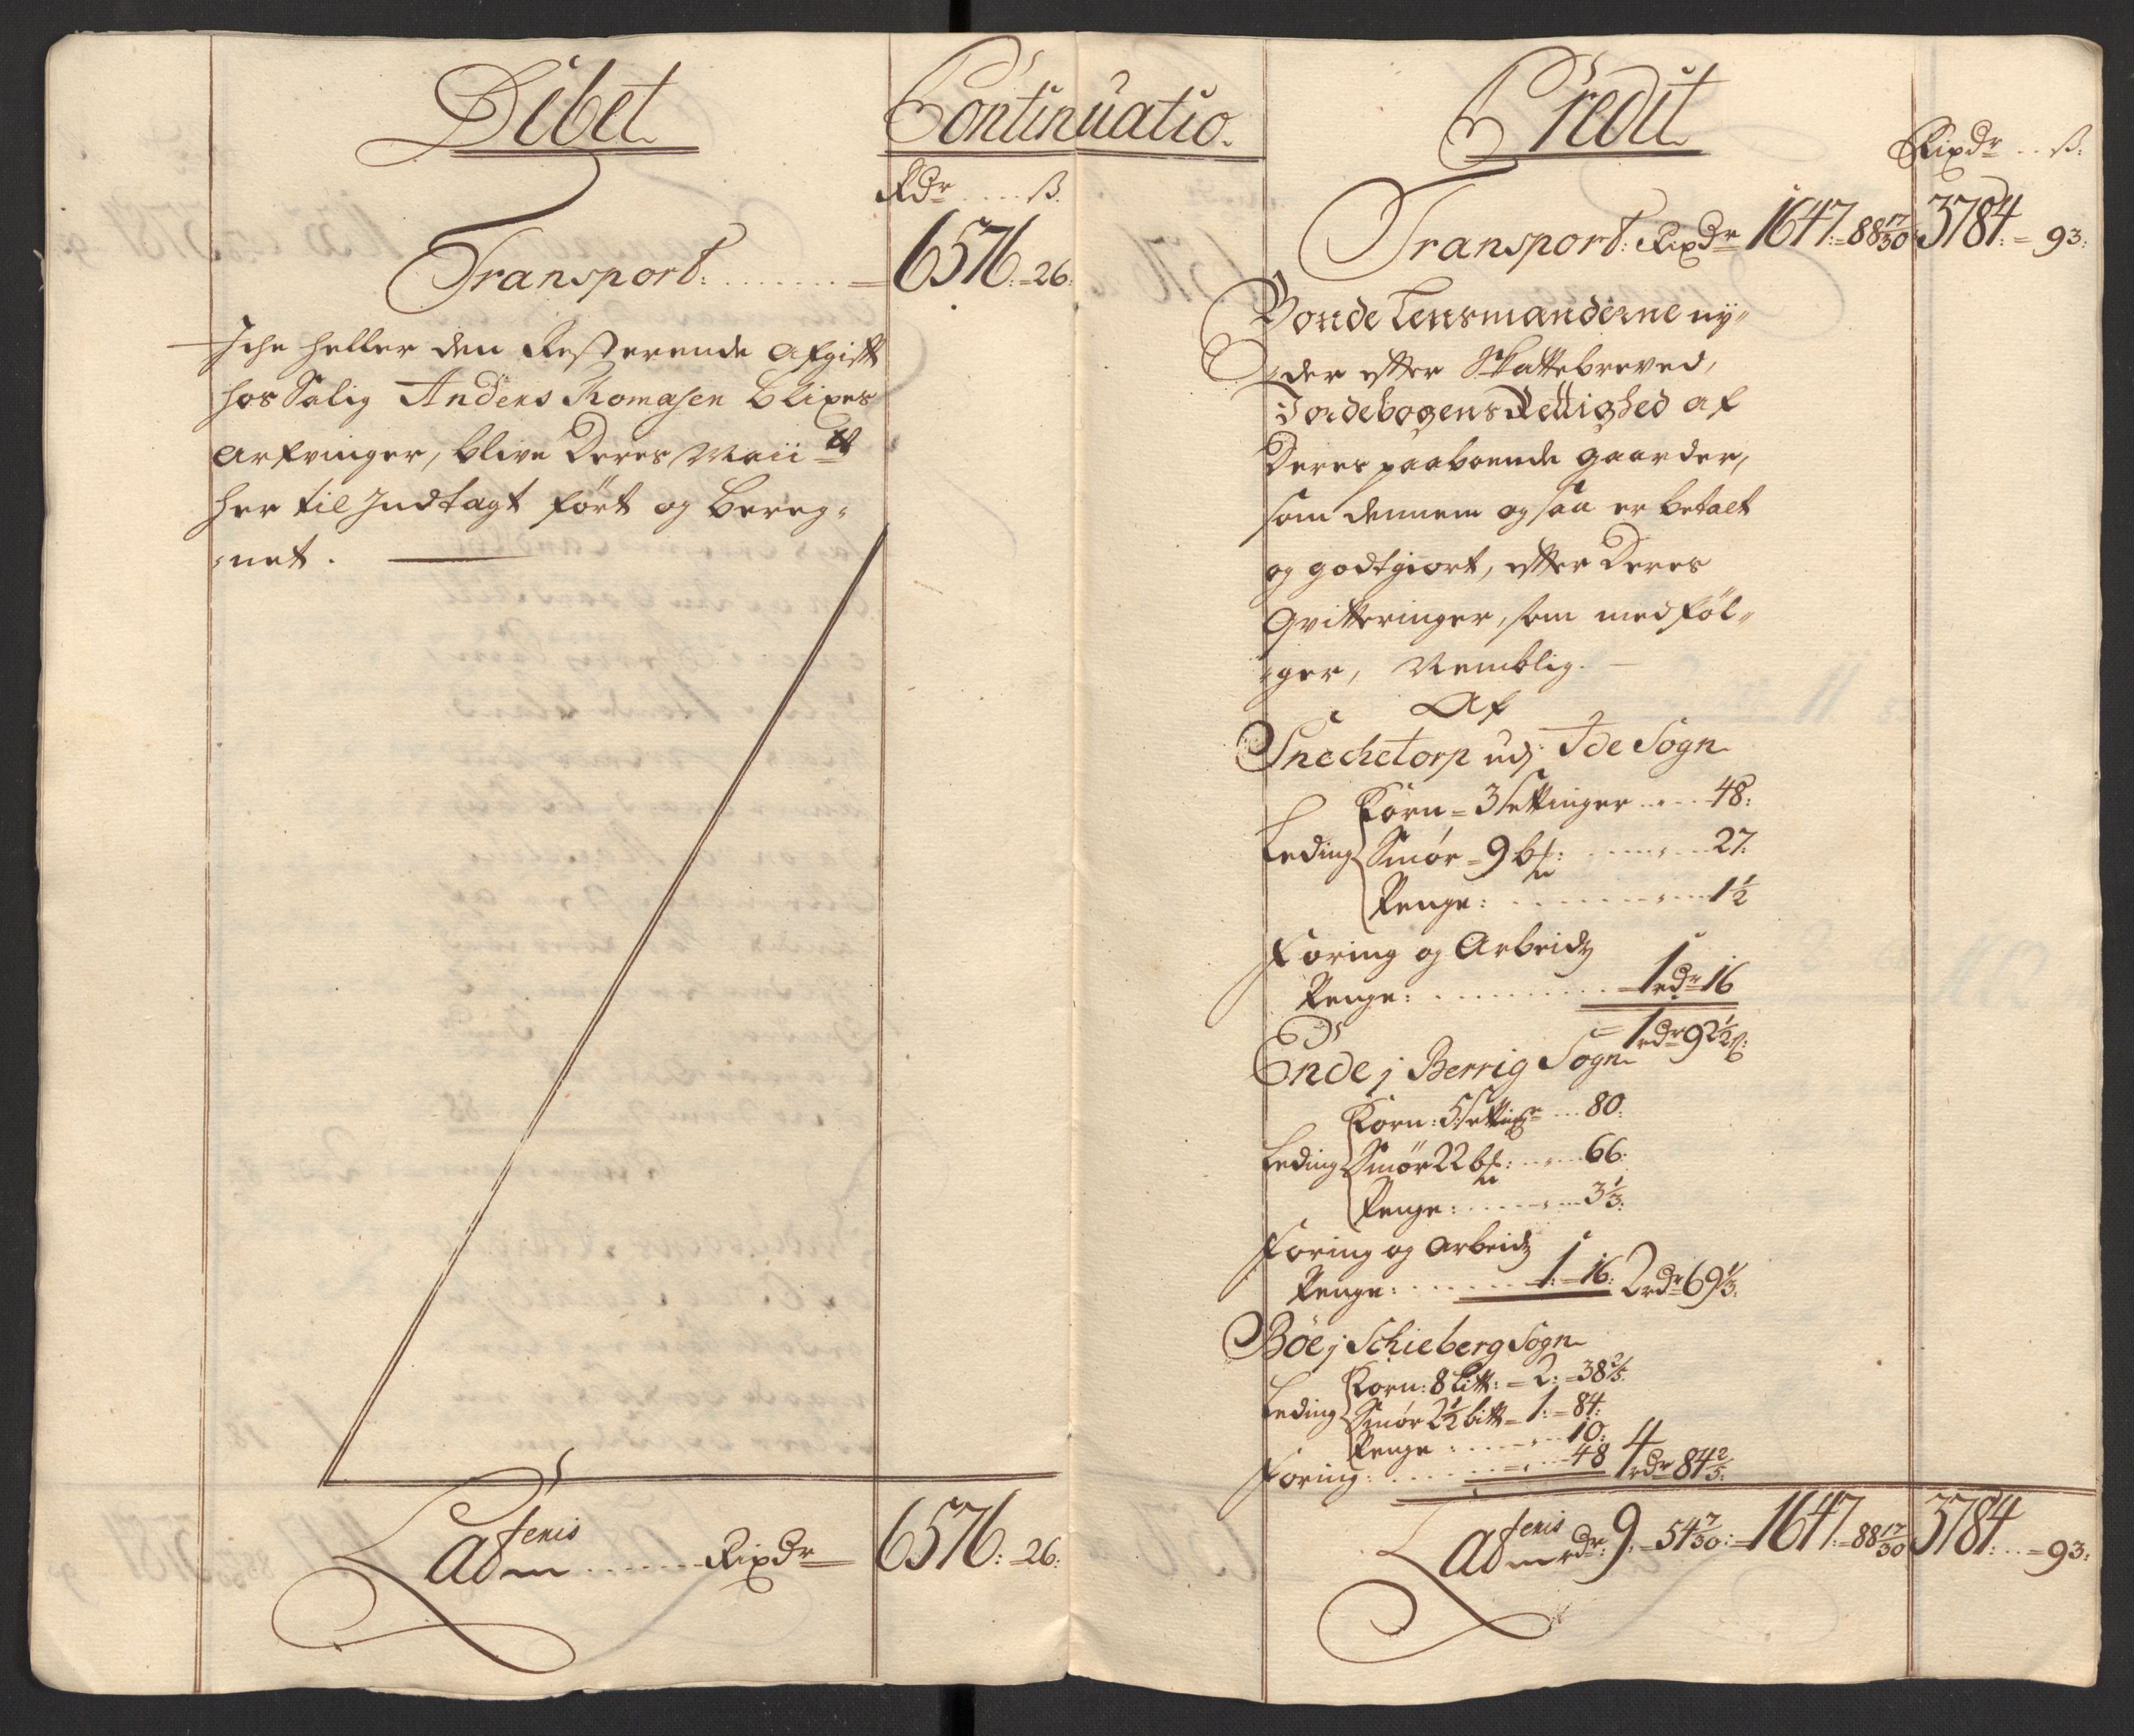 Debet
Continuatio.
Rdr .... ß.
Transport: ....... = 6576: = 26:
Iche heller den Resterende Afgift
hos Salig Anders Thomasen Blixes
Arfvinger, blive Deres Maii tt
her til Indtagt fört og bereg-
-net.
Lateris ...... Rixdr = 6576: = 26:
Credit
Rixdr .. ß:
Transport: Rixdr 1647: = 88 17/30 3784: = 93:
Bonde Lensmænderne ny-
-der efter Skattebreved,
Jordebogens Rettighed af
Deres paaboende gaarder,
som dennem og saa er betalt
og godtgiort, efter Deres
Qvitteringer, som medföl-
-ger, Nemblig.
Af
Snechetorp udj Ide Sogn
Korn = 3 settinger .... 48:
Leding Smør = 9 b: ....... 27:
Penge: ........ 1 1/2
Foring og Arbeidz
Penge: .......... 1 rdr 16
= 1 rdr 92 1/2 ß:
Ende j Berrig Sogn
Korn: 5 setting ... 80:
Leding Smör 22 b: .... 66:
Penge: ...... 3 1/3:
Foring og Arbeidz
Penge: ...... 1: = 16: 2 rdr 69 1/3:
Böe j Schieberg Sogn
Korn: 8 Litt: = 2: = 38 2/5:
Leding Smör 2 1/2 bitt = 1: = 84:
Penge: ...... 10:
Foring: ....... 48 4 rdr 84 2/5:
Lateris rdr: 9: = 54 7/30: = 1647: = 88 17/30 3784: .. = 93: